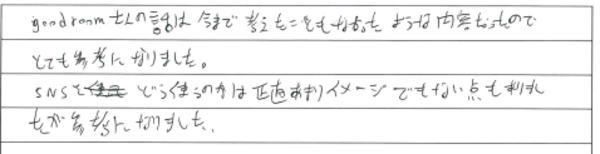 goodroomさんの話は今まで考えたこともなかったような内容だったので
とても参考になりました。
SNSをどう使うのかは正直あまりイメージでもない点もありまし
たが参考になりました。